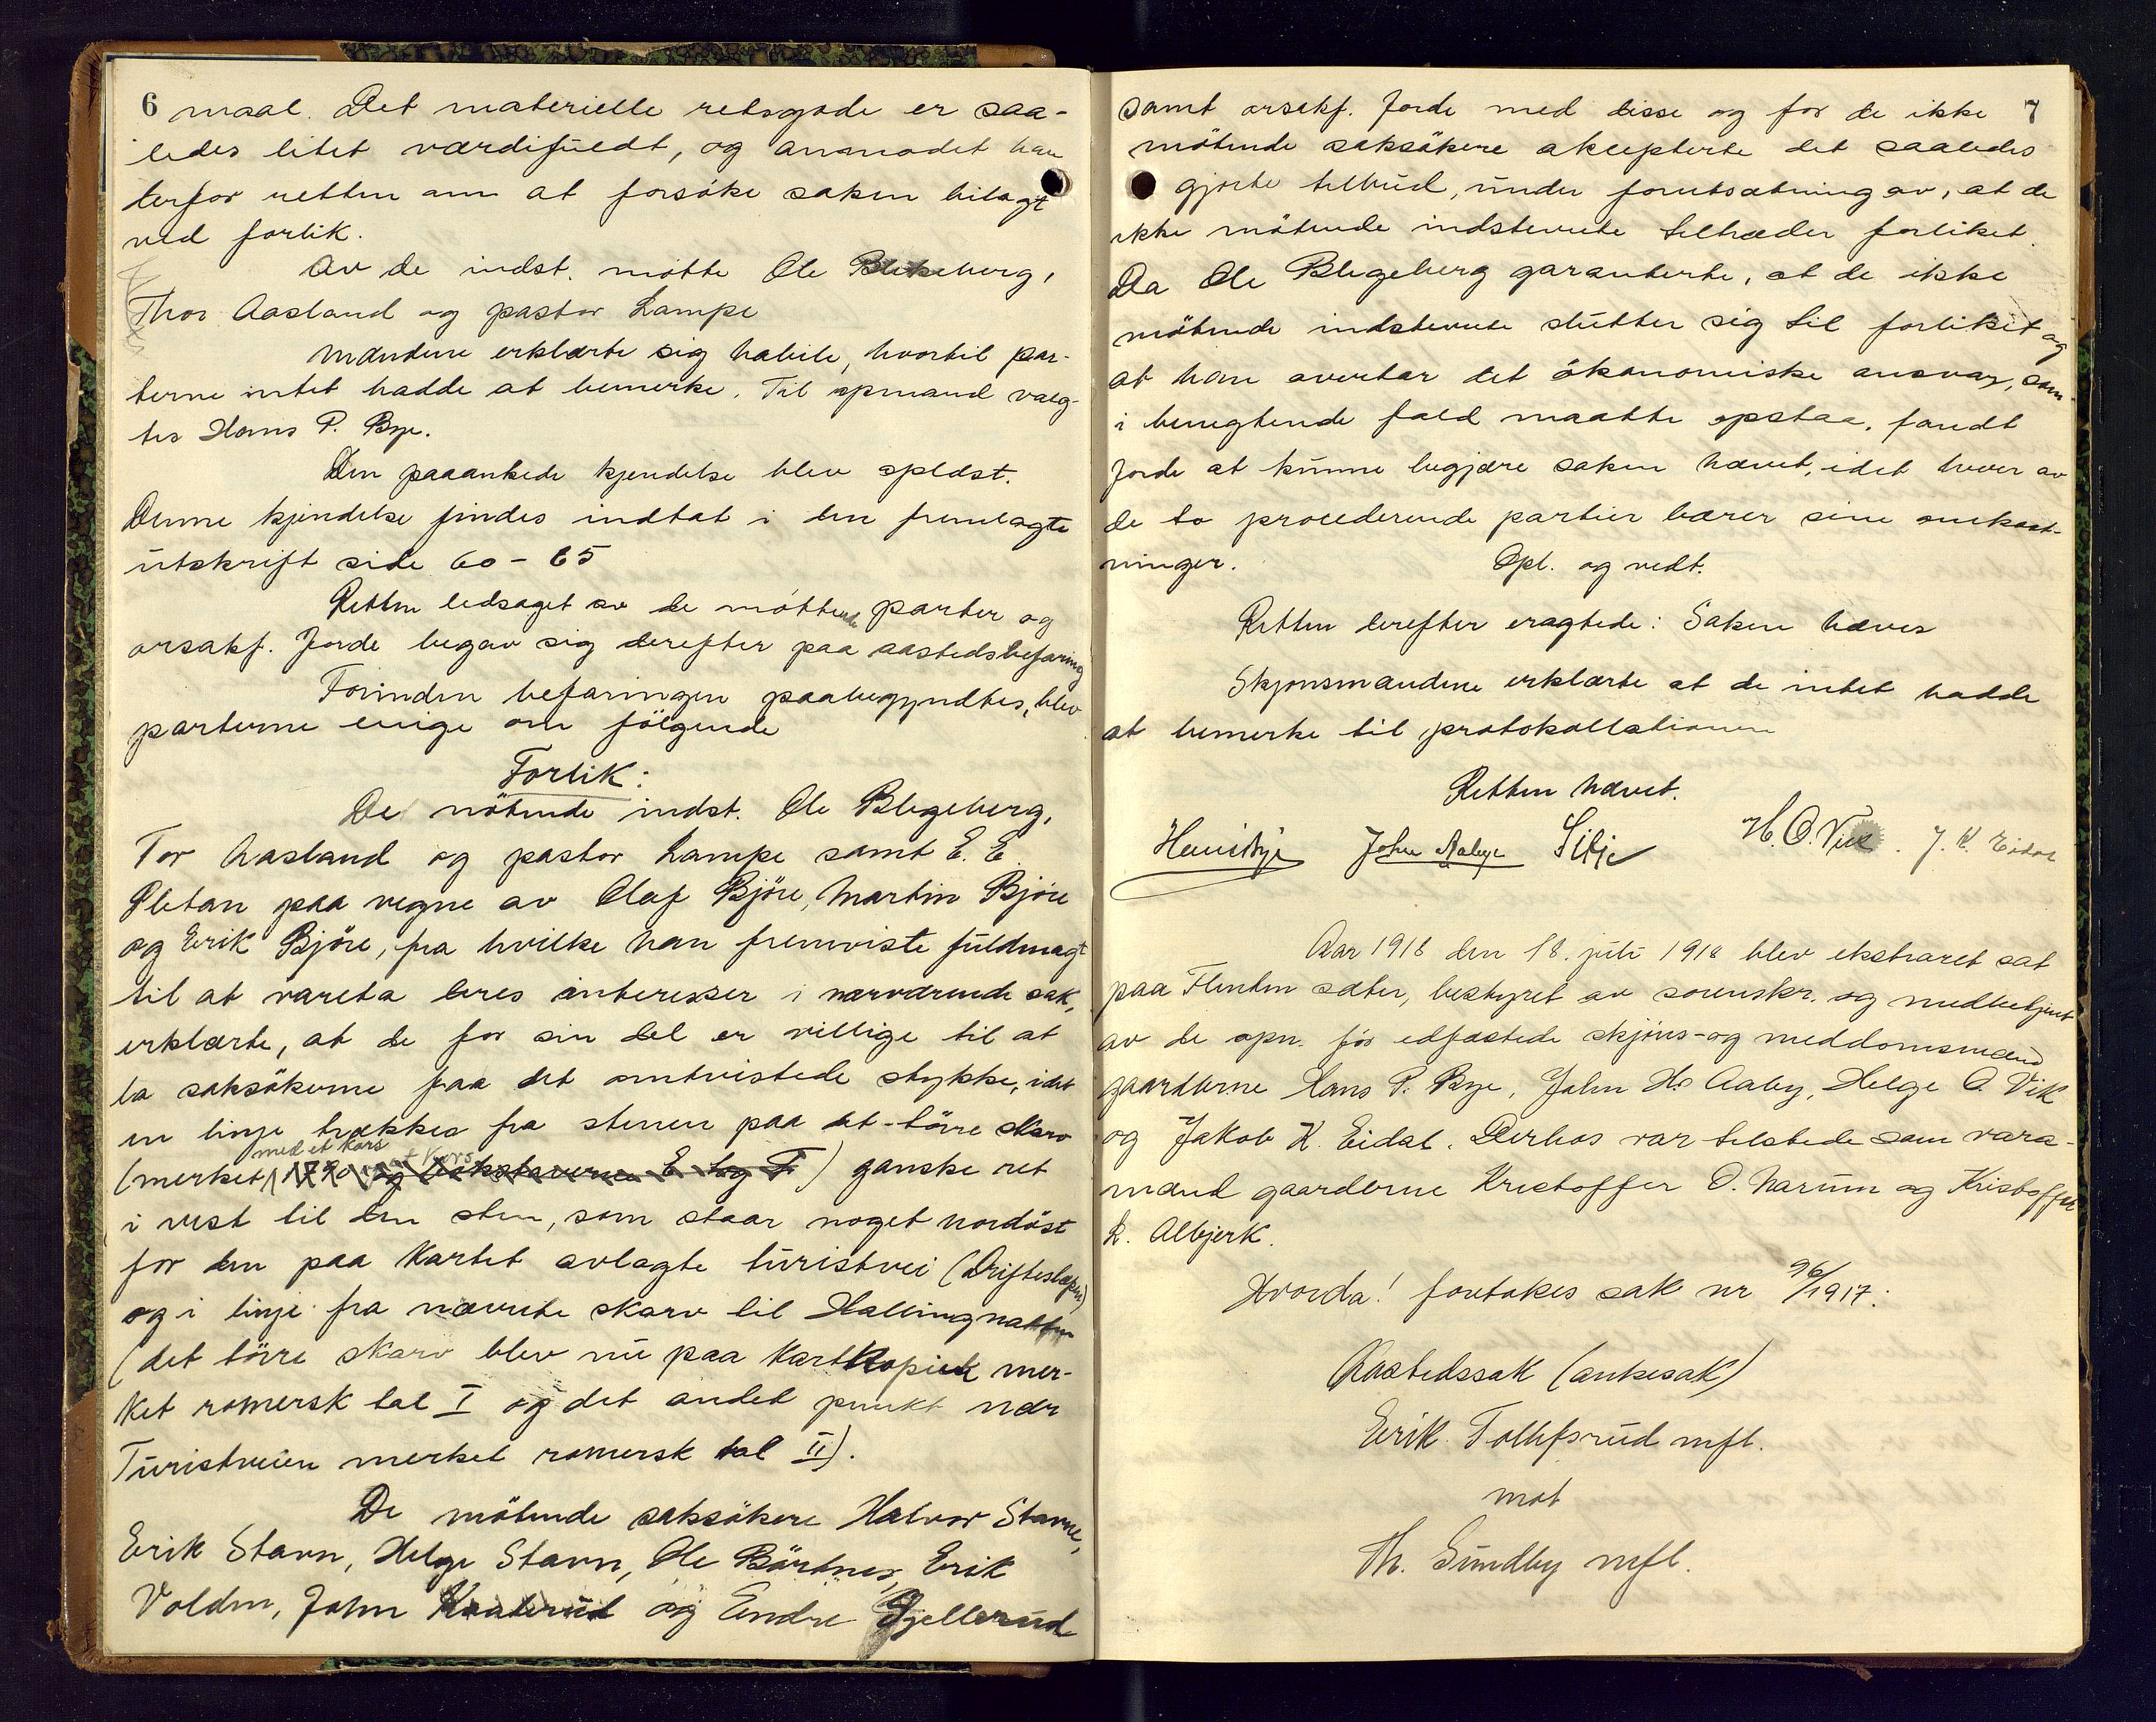 6 maal. Det materielle retsgode er saa-
ledes litet værdifuldt, og anmodet han
derfor retten om at forsöke saken bilagt
ved forlik.
Av de indst. mötte Ole Blikeberg,
Thor Aasland og pastor Lampe
Mændene erklærte sig habile, hvortil par-
terne intet hadde at bemerke. Til opmand valg-
tes Hans P. Bye.
Den paaankede kjendelse blev oplæst.
Denne kjendelse findes indtat i den fremlagte
utskrift side 60 - 65
Retten ledsaget av de möttende parter og
orsakf. Jorde begav sig derefter paa aastedsbefaring
Forinden befaringen paabegyndtes, blev
parterne enige om fölgende
Forlik:
De mötende indst. Ole Blegeberg,
Tor Aasland og pastor Lampe samt E. E.
Pletan paa vegne av Olaf Björe, Martin Björe
og Erik Björe, fra hvilke han fremviste fuldmagt
til at vareta deres interesser i nærværende sak,
erklærte, at de for sin del er villige til at
la saksökerne faa det omtvistede stykke, idet
en linje trækkes fra stenen paa det törre skarv
med et kors
(merket 1790 og bokstaverne E og F) ganske ret
i vest til den sten, som staar noget nordöst
for den paa kartet avlagte turistvei (Driftesløpen)
og i linje fra nævnte skarv til Hallingnatten
(det törre skarv blev nu paa kartkopien mer-
ket romersk tal I og det andet punkt nær
Turistveien merket romersk tal II).
De mötende saksökere Halvor Stavne,
Erik Stavn, Helge Stavn, Ole Börtnes, Erik
Volden, John Kaalerud og Endre Gjellerud
samt orsakf. Jorde med disse og for de ikke 7
mötende saksökere aksepterte det saaledes
gjorte tilbud, under forutsætning av, at de
ikke mötende indstevnte tiltræder forliket.
Da Ole Blegeberg garanterte, at de ikke
mötende indstevnte slutter sig til forliket og
at han overtar det ökonomiske ansvar, som
i benegtende fald maatte opstaa, fandt
Jorde at kunne begjære saken hævet, idet hver av
de to procederende partier bærer sine omkost-
ninger. Opl. og vedt.
Retten derefter eragtede: Saken hæves
Skjönsmændene erklærte at de intet hadde
at bemerke til protokollationen
Retten hævet.
Hans Bye John Aabye Silje H. O. Vik. J. K. Eidal
Aar 1918 den 18. juli 1918 blev ekstraret sat
paa Flenten sæter, bestyret av sorenskr. og medbetjent
av de opn. för edfæstede skjöns- og meddomsmænd
gaardbrne Hans P. Bye, John H. Aaby, Helge O. Vik
og Jakob K. Eidal. Derhos var tilstede som vara-
mænd gaarderne Kristoffer O. Narum og Kristoffer
L. Albjerk.
Hvorda! foretokes sak nr 96/1917:
Aastedssak (ankesak)
Erik Tollefsrud mfl.
mot
Th. Sundby mfl.